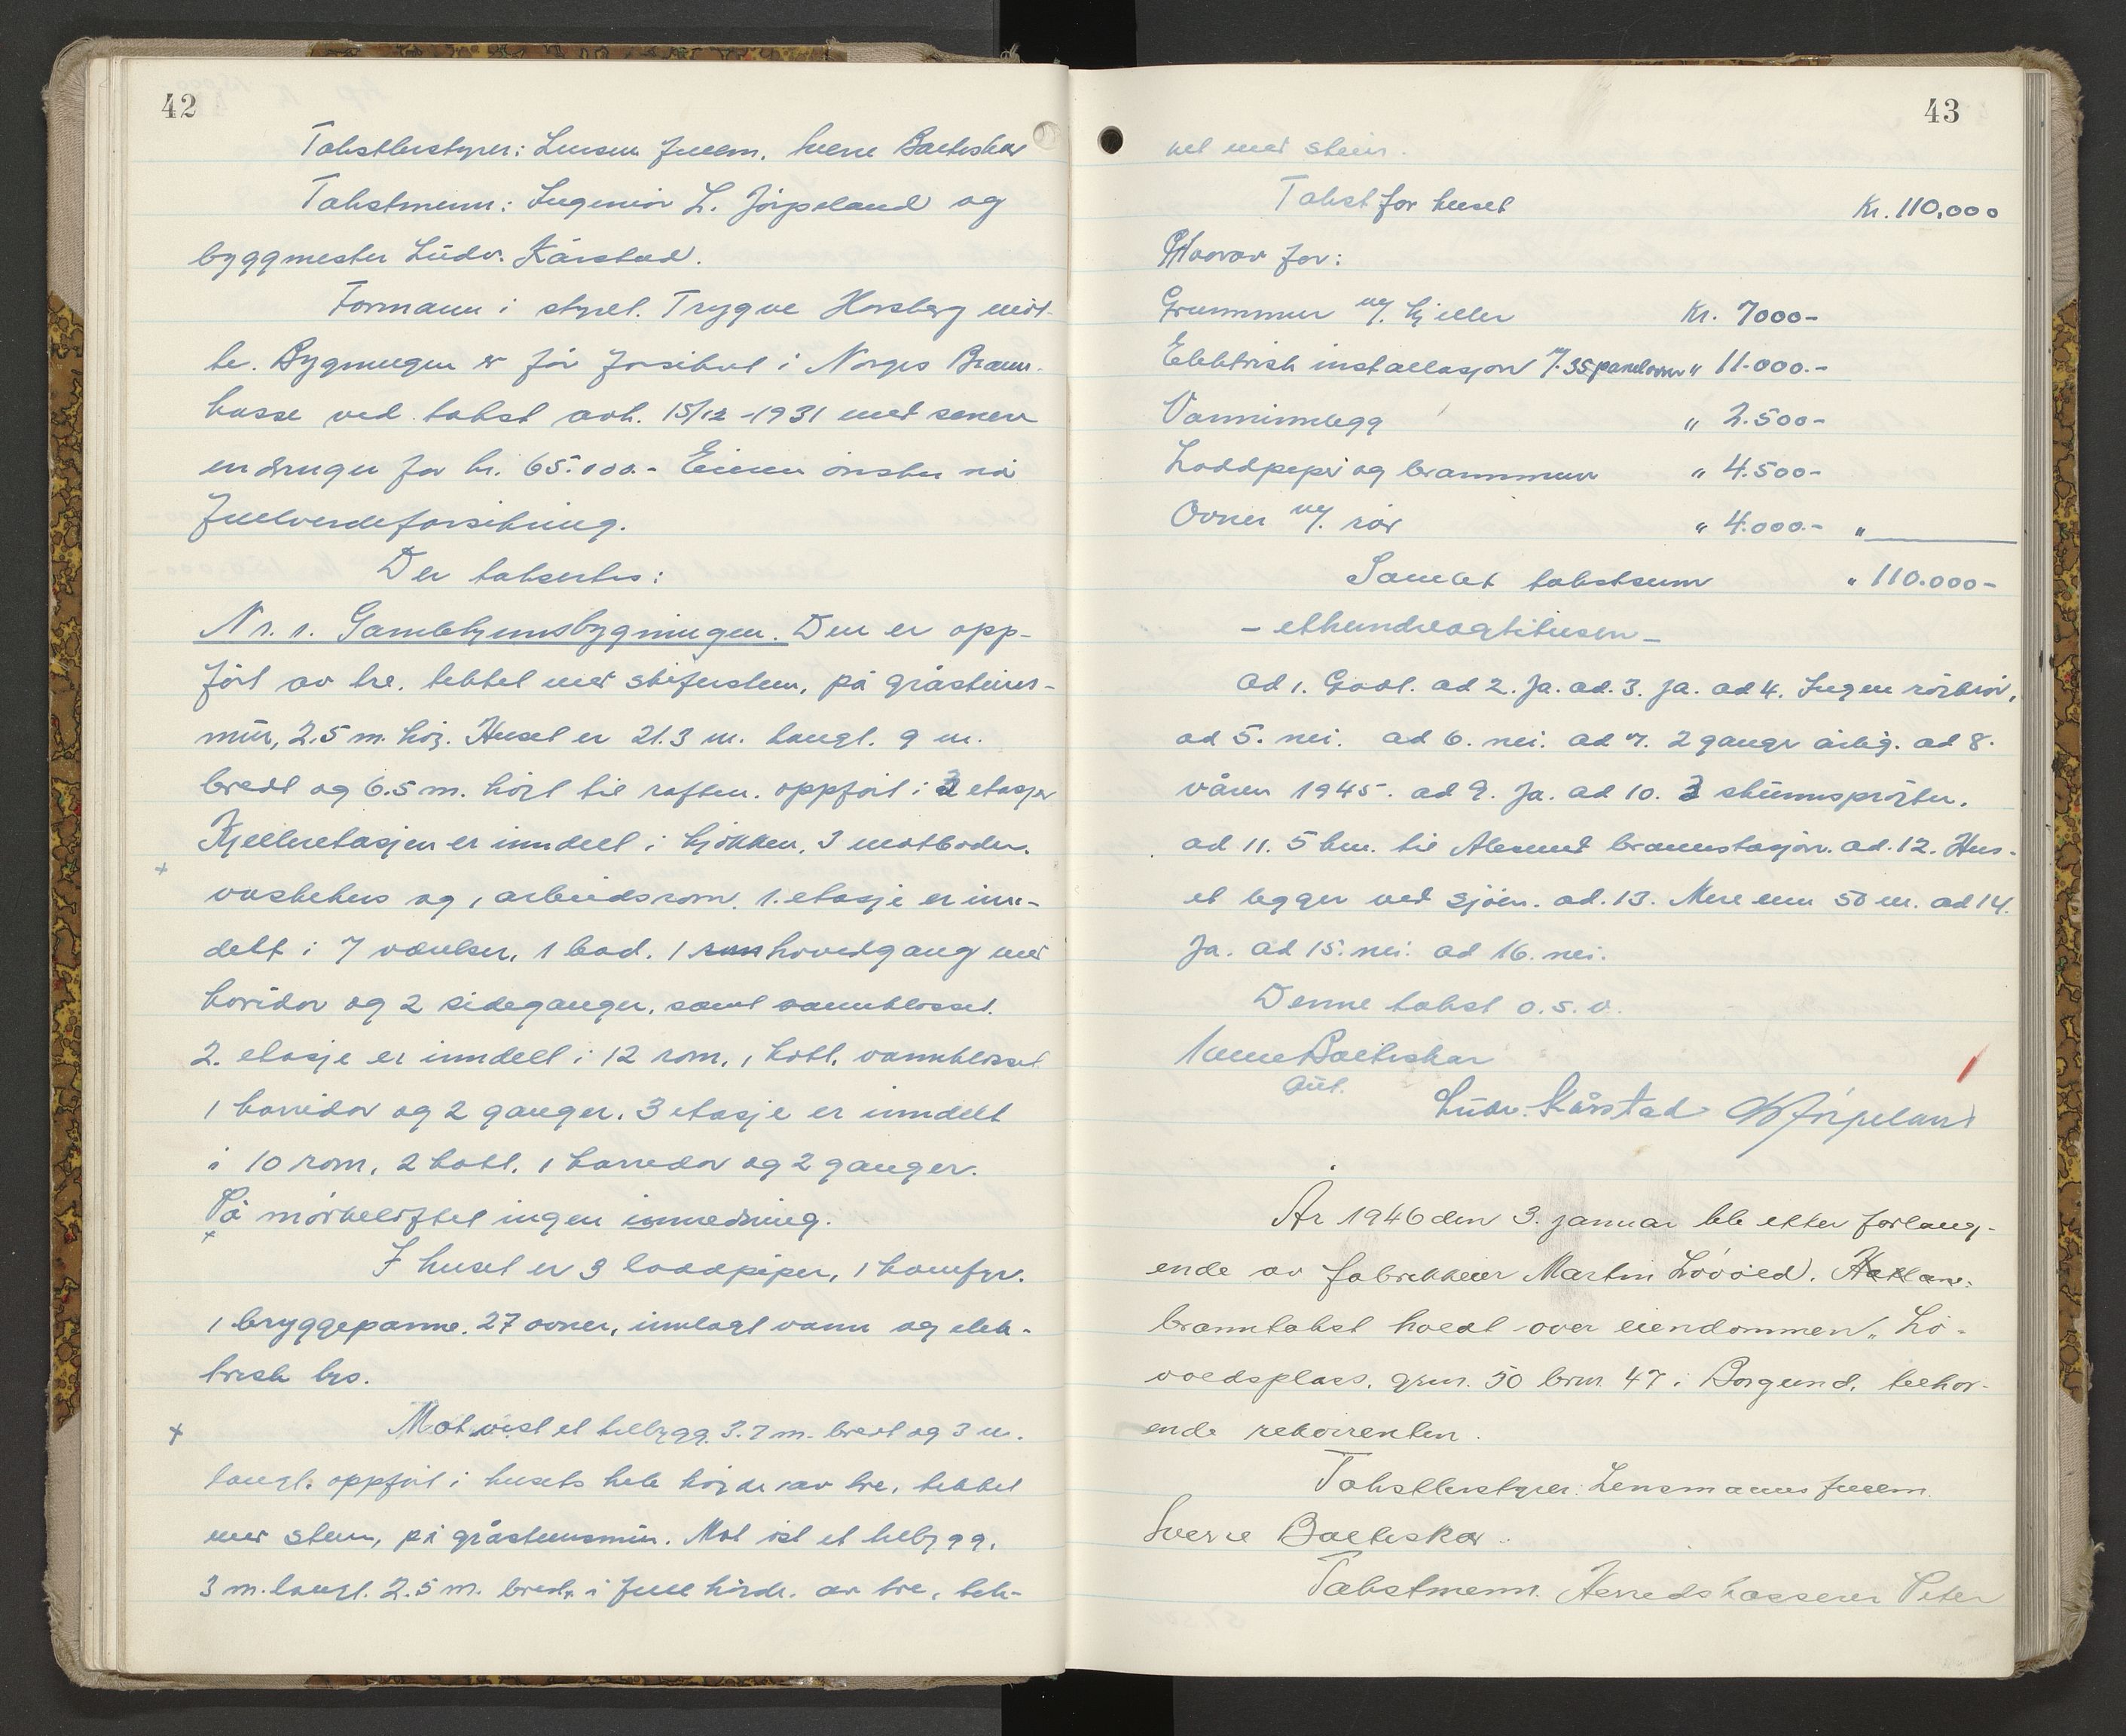 42
Takstbestyrer: Lensm fullm. Sverre Balteskar
Takstmenn: Ingeniør L. Jørpeland og
byggmester Ludv. Kårstad.
Formann i styret. Trygve Horsberg møt-
te. Bygningen er før forsikret i Norges Brann-
kasse ved takst avh. 15/12-1931 med senere
endringer for kr. 65.000.- Eieren ønsker nå
fullverdeforsikring.
Der takseres:
Nr. 1. Gamlehjemsbygningen. Den er opp-
ført av tre. tekket med skiferstein, på gråsteins-
mur, 2.5 m. høg. Huset er 21.3 m. langt. 9 m.
bredt og 6.5 m. høgt til raften. oppført i 3 etasjer
Kjelleretasjen er inndelt i kjøkken, 3 matboder.
vaskehus og 1 arbeidsrom. 1. etasje er inn-
delt i 7 værelser, 1 bad. 1 hovedgang med
koridor og 2 sideganger, samt vannklosset.
2. etasje er inndelt i 12 rom, 1 kott, vannklosset
1 korridor og 2 ganger. 3 etasje er inndelt
i 10 rom, 2 kott, 1 korredor og 2 ganger.
På mørkeloftet ingen innredning.
I huset er 3 loddpiper, 1 komfyr.
1 bryggepanne. 27 ovner, innlagt vann og elek-
trisk lys.
Mot vest et tilbygg. 3.7 m. bredt og 3 m.
langt. oppført i husets hele høgde av tre, tekket
med stein, på gråsteinsmur. Mot øst et tilbygg,
3 m. langt. 2.5 m. bredt, i full høgde. av tre, tek-
43
ket med stein.
Takst for huset Kr. 110,000
Hvorav for:
Grunnmur m/. kjeller Kr. 7000-
Elektrisk installasjon m/. 35 panelovner " 11.000.-
Vanninnlegg " 2.500-
Loddpiper og brannmur " 4.500-
Ovner m/. rør " 4.000.- "
Samlet takstsum " 110.000-
- ethundreogtitusen -
ad 1. Godt. ad 2. Ja. ad. 3. Ja. ad 4. Ingen rørbrør,
ad 5. nei. ad 6. nei. ad 7. 2 ganger årlig. ad 8.
våren 1945. ad 9. Ja. ad 10. 3 skumsprøiter.
ad 11. 5 km. til Ålesund brannstasjon. ad. 12. Hus-
et ligger ved sjøen. ad. 13. Mere enn 50 m. ad 14.
Ja. ad 15. nei. ad 16. nei.
Denne takst o.s.v.
Sverre Balteskar
Ludv. Kårstad L Jørpeland
År 1946 den 3. januar ble etter forlang-
ende av fabrikkeier Martin Løvold. Hatlane.
branntakst holdt over eiendommen „Lø-
voldsplass. grnr. 50 brnr. 47 i Borgund. tilhør-
ende rekvirenten.
Takstbestyrer: Lensmanns fullm.
Sverre Balteskar.
Takstmenn. Herredskasserer Peter